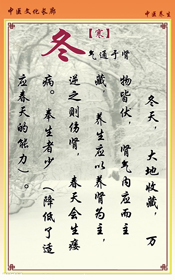 中医文化长廊
中医养生
冬
【寒】
气通于肾
冬天，大地收藏，万
物皆伏，肾气内应而主
藏，养生应以养肾为主，
逆之则伤肾，春天会生痿
病。奉生者少（降低了适
应春天的能力）。